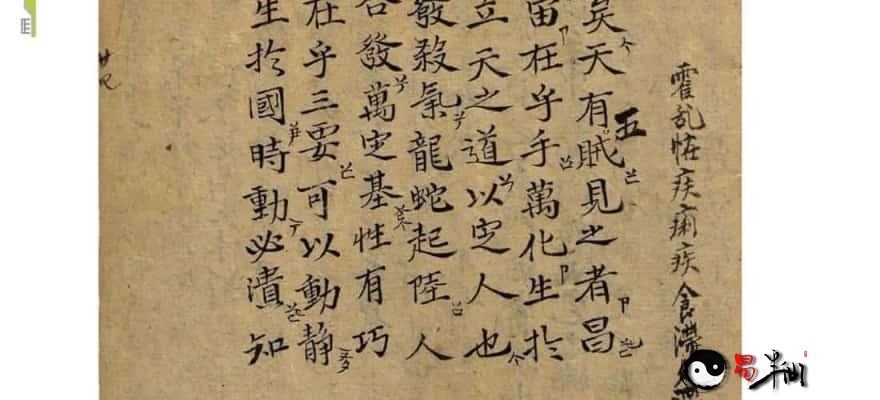 霍乱恠疾痢疾食滯
矣天有五賊見之者昌
宙在乎手萬化生於
立天之道以定人也
發殺氣龍蛇起陸人
合發萬定基性有巧
在乎三要可以動静
生於國時動必潰知
易半仙